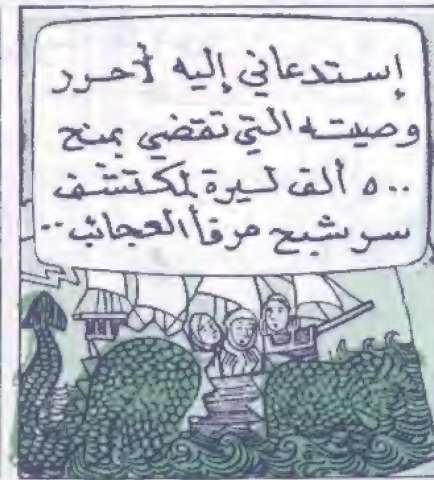 إستدعاني إليه لأحرر
وصيته التي تقضي بمنح
٥٠٠ ألف ليرة لمكتشف
سر شبح مرفأ العجائب..